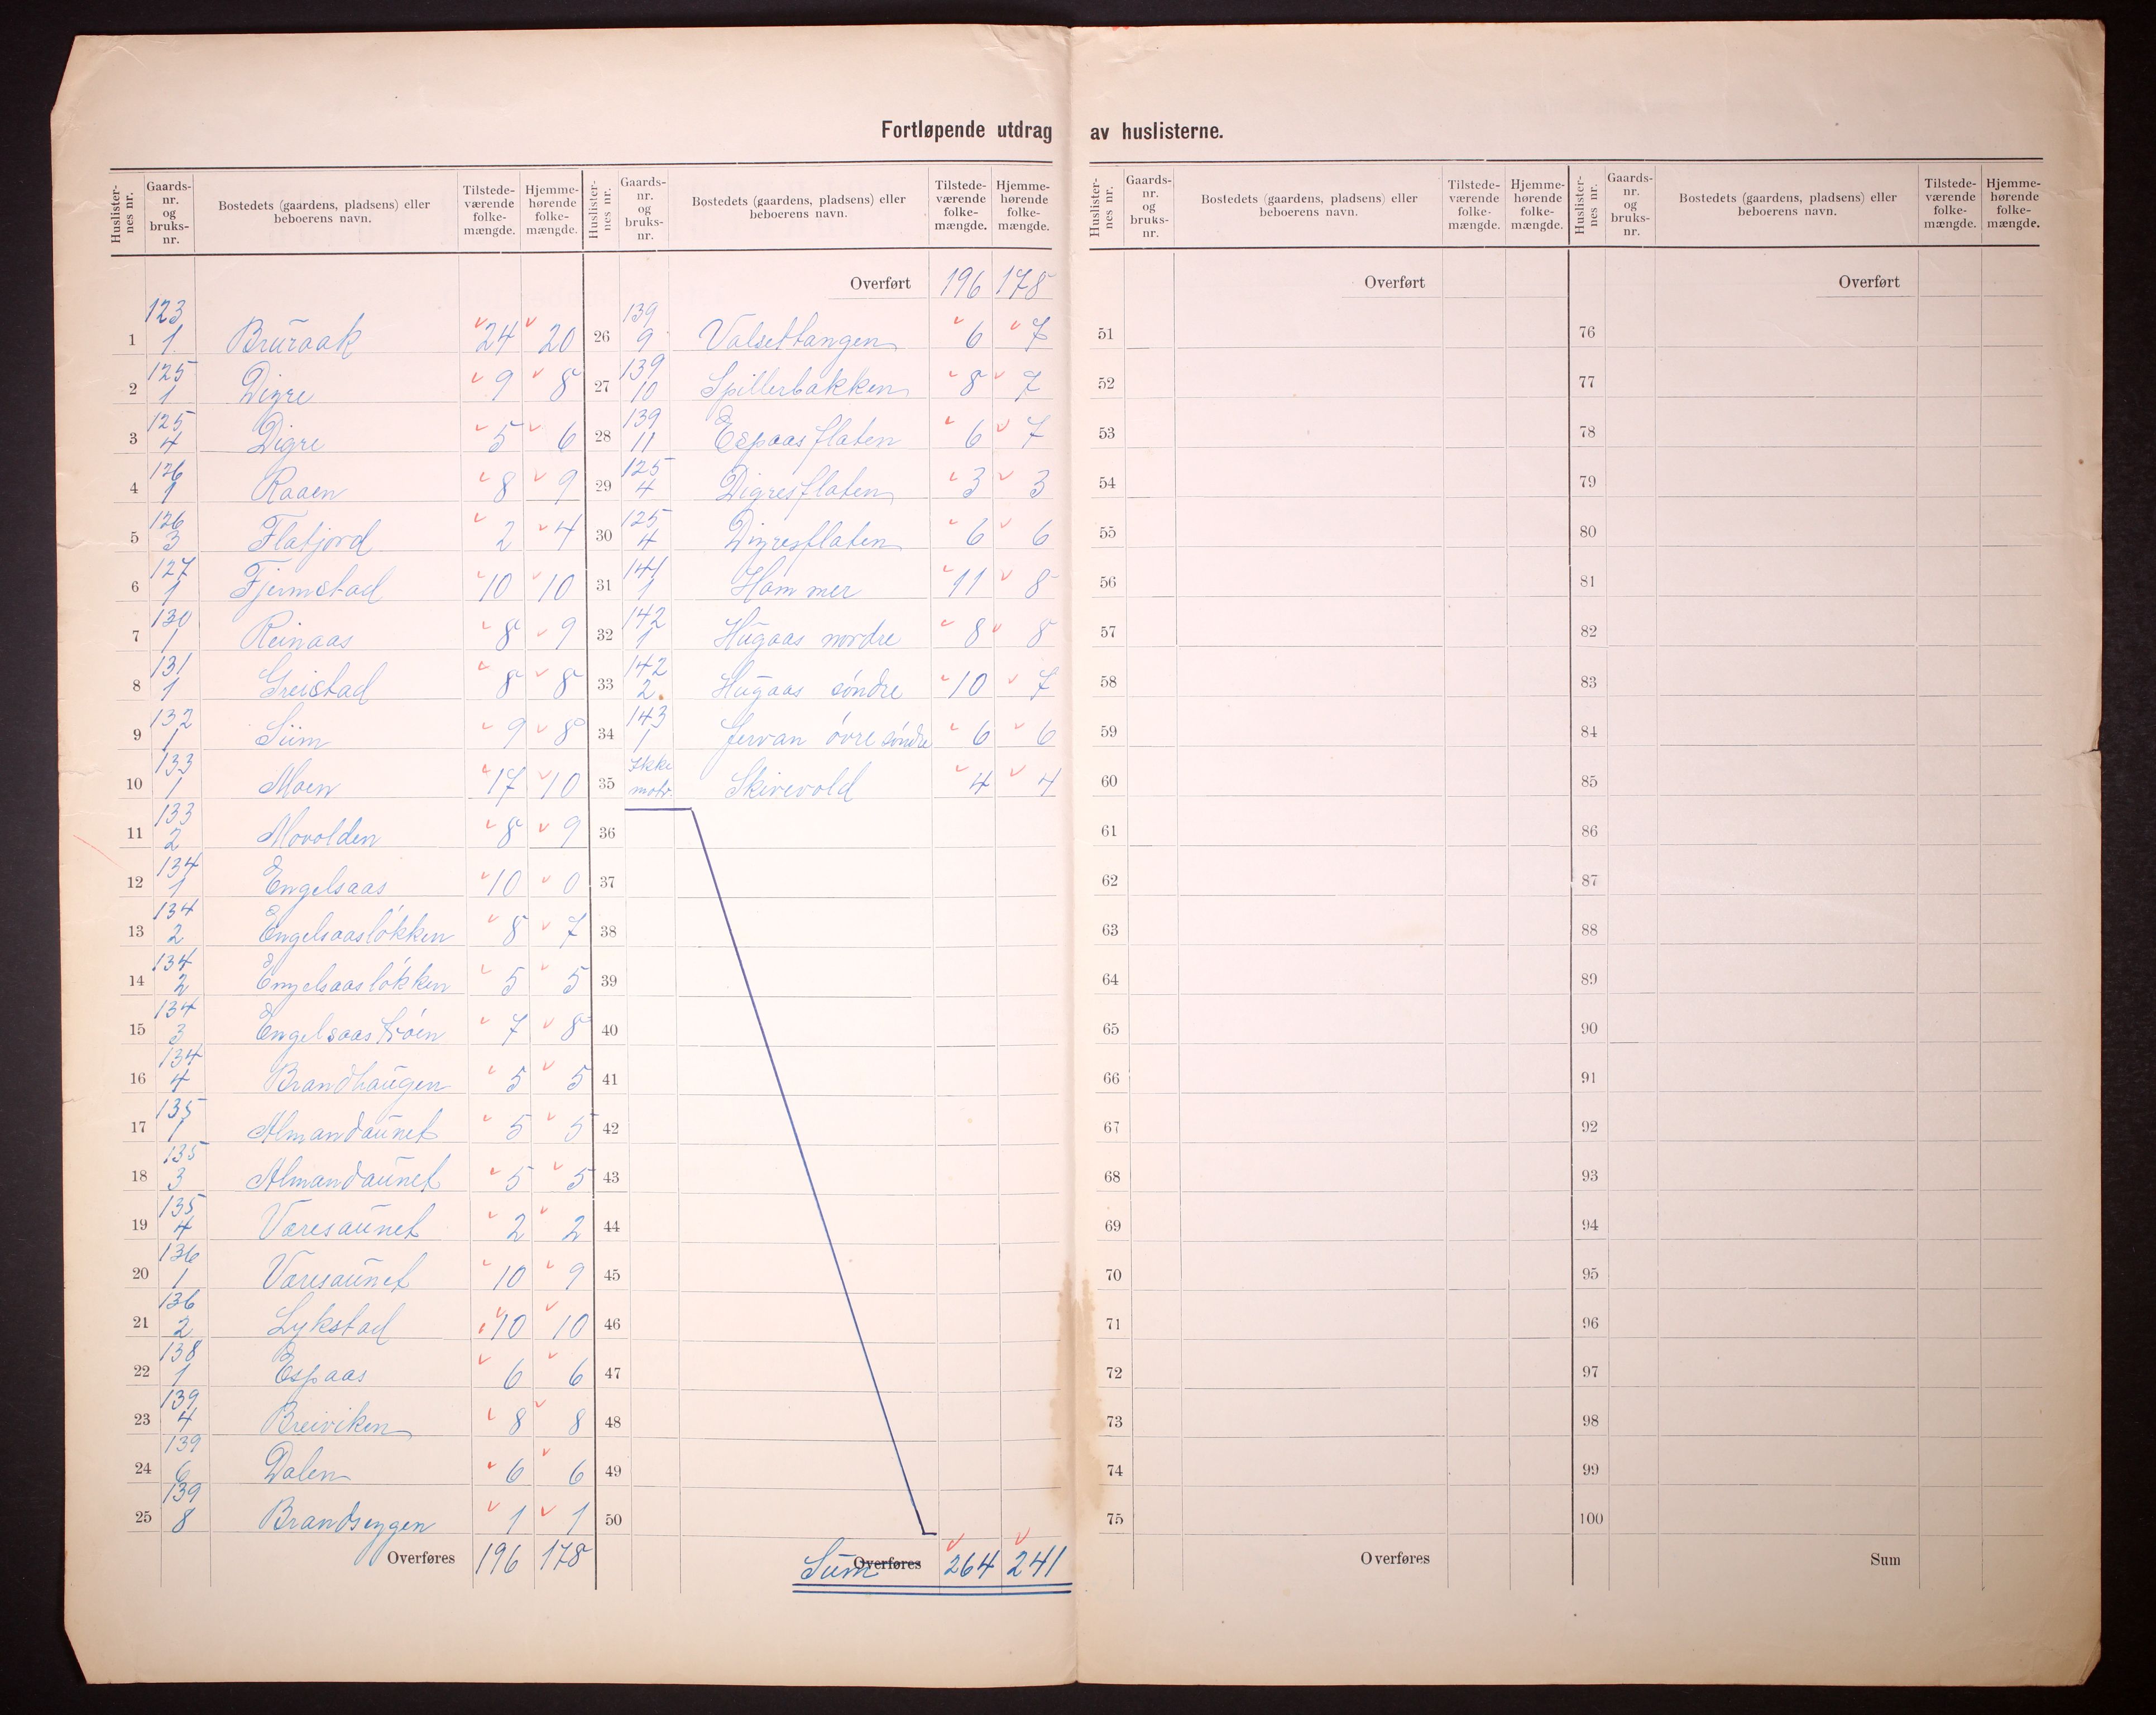 Fortløpende utdrag av huslisterne.
Huslister-nes nr. Gaards-nr. og bruks-nr. Bostedets (gaardens, pladsens) eller beboerens navn. Tilstede-værende folke-mængde. Hjemme-hørende folke-mængde.
1 123 1 Bruraak 24 20
2 125 1 Digre 9 8
3 125 4 Digre 5 6
4 126 1 Raaen 8 9
5 126 3 Flatjord 2 4
6 127 1 Fjermstad 10 10
7 130 1 Reinaas 8 9
8 131 1 Greistad 8 8
9 132 1 Sum 9 8
10 133 1 Moen 17 10
11 133 2 Movolden 8 9
12 134 1 Engelsaas 10 0
13 134 2 Engelsaasløkken 8 7
14 134 2 Engelsaasløkken 5 5
15 134 3 Engelsaastrøen 7 8
16 134 4 Brandhaugen 5 5
17 135 1 Almandaunet 5 5
18 135 3 Almandaunet 5 5
19 135 4 Væresaunet 2 2
20 136 1 Væresaunet 10 9
21 136 2 Lykstad 10 10
22 138 1 Espaas 6 6
23 139 4 Breiviken 8 8
24 139 6 Dalen 6 6
25 139 8 Brandseggen 1 1
Overføres 196 178
Huslister-nes nr. Gaards-nr. og bruks-nr. Bostedets (gaardens, pladsens) eller beboerens navn. Tilstede-værende folke-mængde. Hjemme-hørende folke-mængde.
Overført 196 178
26 139 9 Valsettangen 6 7
27 139 10 Spillerbakken 8 7
28 139 11 Espaasflaten 6 7
29 125 4 Digresflaten 3 3
30 125 4 Digresflaten 6 6
31 141 1 Hammer 11 8
32 142 1 Hugaas nordre 8 8
33 142 2 Hugaas søndre 10 7
34 143 1 Jervan øvre søndre 6 6
35 Ikke matr. Skirevold 4 4
36
37
38
39
40
41
42
43
44
45
46
47
48
49
50
Sum Overføres 264 241
Huslister-nes nr. Gaards-nr. og bruks-nr. Bostedets (gaardens, pladsens) eller beboerens navn. Tilstede-værende folke-mængde. Hjemme-hørende folke-mængde.
Overført
51
52
53
54
55
56
57
58
59
60
61
62
63
64
65
66
67
68
69
70
71
72
73
74
75
Overføres
Huslister-nes nr. Gaards-nr. og bruks-nr. Bostedets (gaardens, pladsens) eller beboerens navn. Tilstede-værende folke-mængde. Hjemme-hørende folke-mængde.
Overført
76
77
78
79
80
81
82
83
84
85
86
87
88
89
90
91
92
93
94
95
96
97
98
99
100
Sum